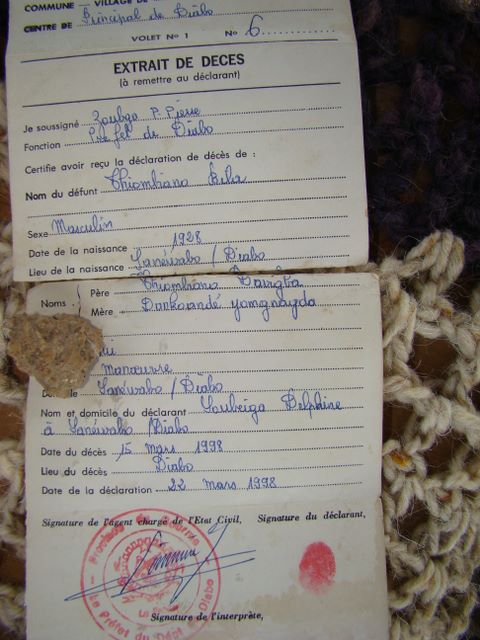 COMMUNE — VILLAGE DE
CENTRE DE Principal de Diabo
VOLET N° 1 N° 6
EXTRAIT DE DECES
(à remettre au déclarant)
Je soussigné Zoubga P. Pierre
Fonction Préfet de Diabo
Certifie avoir reçu la déclaration de décès de :
Nom du défunt Thiombiano
Sexe Masculin
Date de la naissance 1928
Lieu de la naissance Lanéwabo / Diabo
Noms : Père Thiombiano
Mère Dankoandé Yomgnayda
Manœuvre
Lanéwabo / Diabo
Nom et domicile du déclarant Soubeiga Delphine
à Lanéwabo / Diabo
Date du décès 15 Mars 1998
Lieu du décès Diabo
Date de la déclaration 22 Mars 1998
Signature de l'agent chargé de l'Etat Civil, Signature du déclarant,
Le Préfet du Diabo
Signature de l'interprète,